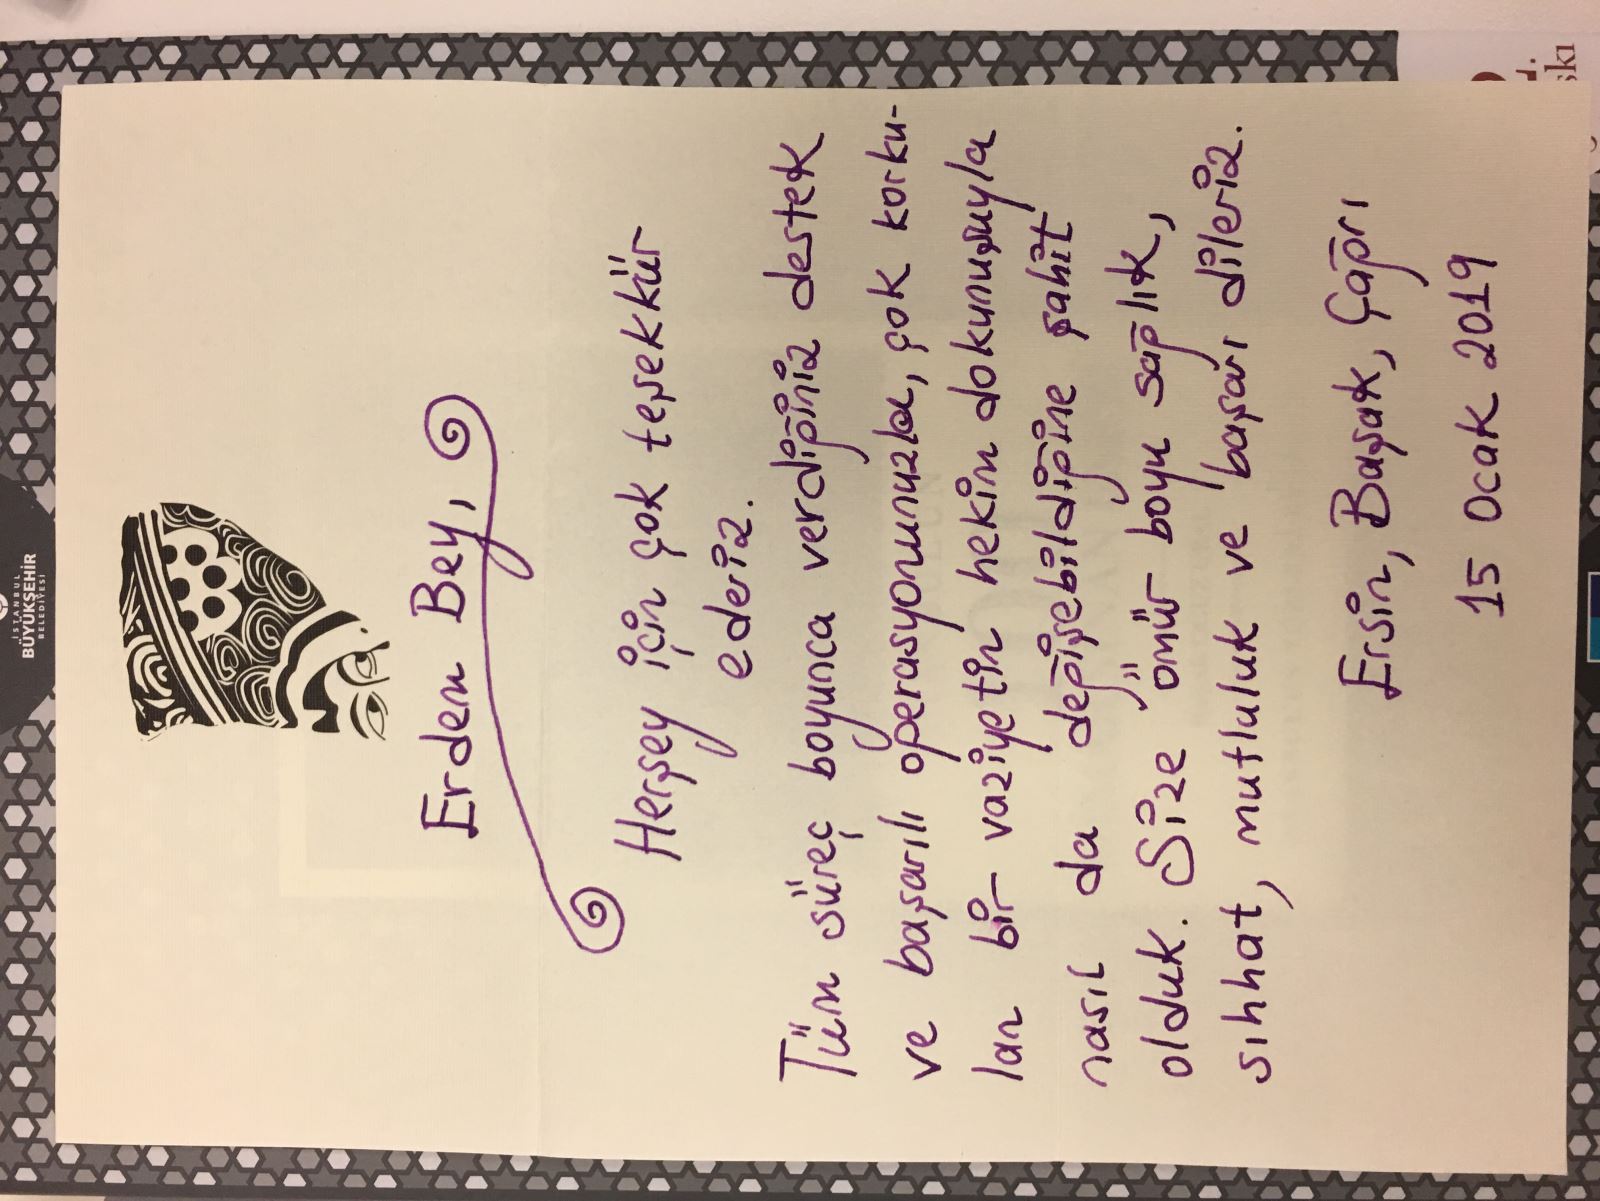 Erdem Bey,
Herşey için çok teşekkür
ederiz.
Tüm süreç boyunca verdiğiniz destek
ve başarılı operasyonunuzla, çok korku-
lan bir vaziyetin hekim dokunuşuyla
nasıl da değişebildiğine şahit
olduk. Size ömür boyu sağlık,
sıhhat, mutluluk ve başarı dileriz.
Ersin, Başak, Çağrı
15 Ocak 2019
İSTANBUL
BÜYÜKŞEHİR
BELEDİYESİ